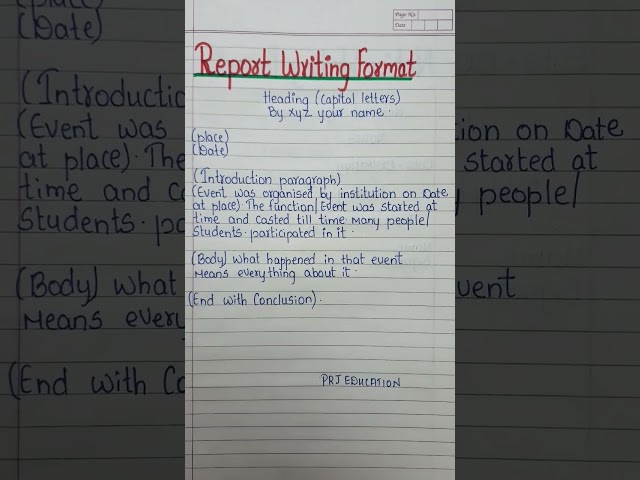 Page No.
Date
Report Writing Format
Heading (capital letters)
By xyz your name.
(place)
(Date)
(Introduction paragraph)
(Event was organised by institution on Date
at place). The function/Event was started at
time and casted till time. Many people/
Students. participated in it.
(Body) what happened in that event
Means everything about it.
(End with Conclusion).
PRJ EDUCATION